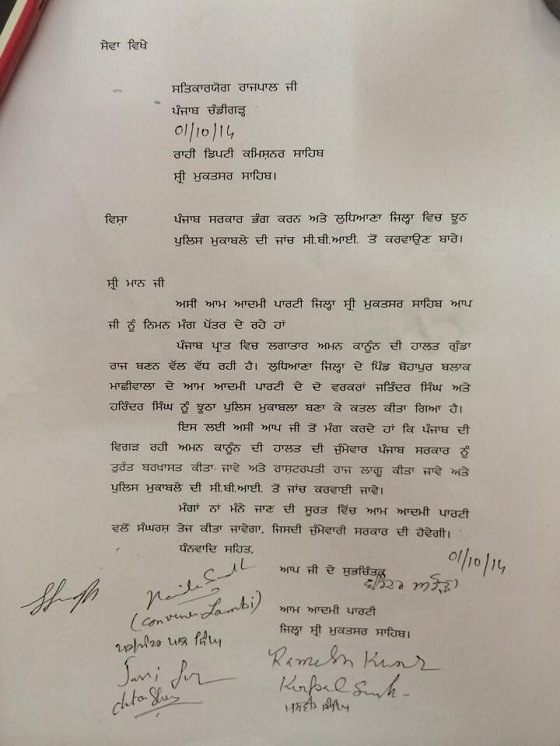 ਸੇਵਾ ਵਿਖੇ
ਸਤਿਕਾਰਯੋਗ ਰਾਜਪਾਲ ਜੀ
ਪੰਜਾਬ ਚੰਡੀਗੜ੍ਹ
01/10/14
ਰਾਹੀ ਡਿਪਟੀ ਕਮਿਸ਼ਨਰ ਸਾਹਿਬ
ਸ਼੍ਰੀ ਮੁਕਤਸਰ ਸਾਹਿਬ।
ਵਿਸ਼ਾ ਪੰਜਾਬ ਸਰਕਾਰ ਭੰਗ ਕਰਨ ਅਤੇ ਲੁਧਿਆਣਾ ਜਿਲ੍ਹਾ ਵਿਚ ਝੂਠ
ਪੁਲਿਸ ਮੁਕਾਬਲੇ ਦੀ ਜਾਂਚ ਸੀ.ਬੀ.ਆਈ. ਤੋਂ ਕਰਵਾਉਣ ਬਾਰੇ।
ਸ਼੍ਰੀ ਮਾਨ ਜੀ
ਅਸੀ ਆਮ ਆਦਮੀ ਪਾਰਟੀ ਜਿਲ੍ਹਾ ਸ਼੍ਰੀ ਮੁਕਤਸਰ ਸਾਹਿਬ ਆਪ
ਜੀ ਨੂੰ ਨਿਮਨ ਮੰਗ ਪੱਤਰ ਦੇ ਰਹੇ ਹਾਂ
ਪੰਜਾਬ ਪ੍ਰਾਤ ਵਿਚ ਲਗਾਤਾਰ ਅਮਨ ਕਾਨੂੰਨ ਦੀ ਹਾਲਤ ਗੁੰਡਾ
ਰਾਜ ਬਣਨ ਵੱਲ ਵੱਧ ਰਹੀ ਹੈ। ਲੁਧਿਆਣਾ ਜਿਲ੍ਹਾ ਦੇ ਪਿੰਡ ਬੋਹਾਪੁਰ ਬਲਾਕ
ਮਾਛੀਵਾਲਾ ਦੇ ਆਮ ਆਦਮੀ ਪਾਰਟੀ ਦੇ ਦੋ ਵਰਕਰਾਂ ਜਤਿੰਦਰ ਸਿੰਘ ਅਤੇ
ਹਰਿੰਦਰ ਸਿੰਘ ਨੂੰ ਝੂਠਾ ਪੁਲਿਸ ਮੁਕਾਬਲਾ ਬਣਾ ਕੇ ਕਤਲ ਕੀਤਾ ਗਿਆ ਹੈ।
ਇਸ ਲਈ ਅਸੀ ਆਪ ਜੀ ਤੋਂ ਮੰਗ ਕਰਦੇ ਹਾਂ ਕਿ ਪੰਜਾਬ ਦੀ
ਵਿਗੜ ਰਹੀ ਅਮਨ ਕਾਨੂੰਨ ਦੀ ਹਾਲਤ ਦੀ ਜੁੰਮੇਵਾਰ ਪੰਜਾਬ ਸਰਕਾਰ ਨੂੰ
ਤੁਰੰਤ ਬਰਖਾਸਤ ਕੀਤਾ ਜਾਵੇ ਅਤੇ ਰਾਸ਼ਟਰਪਤੀ ਰਾਜ ਲਾਗੂ ਕੀਤਾ ਜਾਵੇ ਅਤੇ
ਪੁਲਿਸ ਮੁਕਾਬਲੇ ਦੀ ਸੀ.ਬੀ.ਆਈ. ਤੋਂ ਜਾਂਚ ਕਰਵਾਈ ਜਾਵੇ।
ਮੰਗਾਂ ਨਾਂ ਮੰਨੇ ਜਾਣ ਦੀ ਸੂਰਤ ਵਿੱਚ ਆਮ ਆਦਮੀ ਪਾਰਟੀ
ਵਲੋਂ ਸੰਘਰਸ਼ ਤੇਜ ਕੀਤਾ ਜਾਵੇਗਾ, ਜਿਸਦੀ ਜੁੰਮੇਵਾਰੀ ਸਰਕਾਰ ਦੀ ਹੋਵੇਗੀ।
ਧੰਨਵਾਦਿ ਸਹਿਤ,
01/10/14
ਆਪ ਜੀ ਦੇ ਸ਼ੁਭਚਿੰਤਕ
(Convener Lambi)
ਆਮ ਆਦਮੀ ਪਾਰਟੀ
ਜਿਲ੍ਹਾ ਸ਼੍ਰੀ ਮੁਕਤਸਰ ਸਾਹਿਬ।
Ramesh Kumar
Kirpal Singh